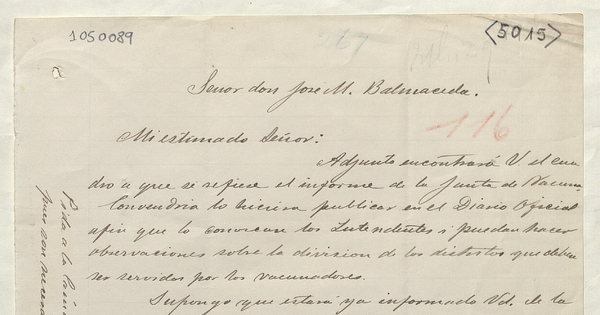 1050089
<5015>
Señor don José M. Balmaceda.
116
Mi estimado Señor:
Adjunto encontrará V. el cua
dro a que se refiere el informe de la Junta de Vacuna
Convendria lo hiciera publicar en el Diario Oficial
afin que lo conozcan los Intendentes i puedan hacer
observaciones sobre la division de los distritos que deben
ser servidos por los vacunadores.
Supongo que estará ya informado Vd. de la
Pida a la